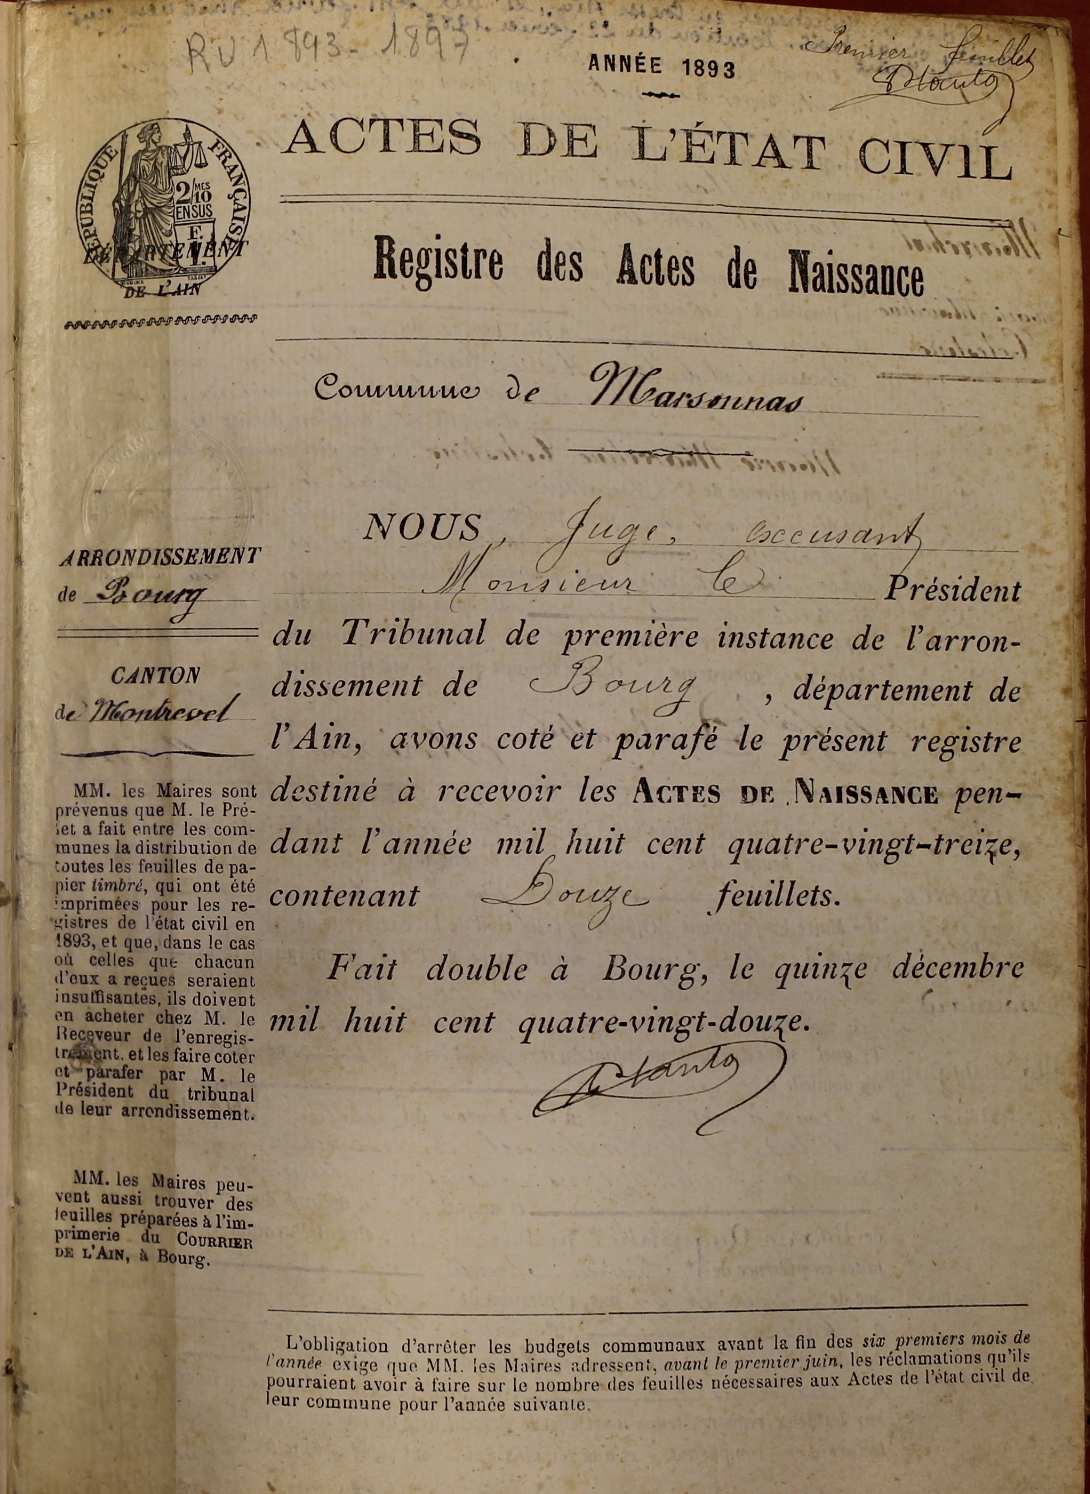 RV 1893-1897
ANNÉE 1893
Premier feuillet
ACTES DE L'ÉTAT CIVIL
RÉPUBLIQUE FRANÇAISE
2/10 MES
EN SUS
DÉPARTEMENT
DE L'AIN
Registre des Actes de Naissance
Commune de Marsonnas
ARRONDISSEMENT
de Bourg
CANTON
de Montrevel
MM. les Maires sont
prévenus que M. le Pré-
fet a fait entre les com-
munes la distribution de
toutes les feuilles de pa-
pier timbré, qui ont été
imprimées pour les re-
gistres de l'état civil en
1893, et que, dans le cas
où celles que chacun
d'eux a reçues seraient
insuffisantes, ils doivent
en acheter chez M. le
Receveur de l'enregis-
trement, et les faire coter
et parafer par M. le
Président du tribunal
de leur arrondissement.
MM. les Maires peu-
vent aussi trouver des
feuilles préparées à l'im-
primerie du COURRIER
DE L'AIN, à Bourg.
NOUS, Juge, excusant
Monsieur le Président
du Tribunal de première instance de l'arron-
dissement de Bourg, département de
l'Ain, avons coté et parafé le présent registre
destiné à recevoir les ACTES DE NAISSANCE pen-
dant l'année mil huit cent quatre-vingt-treize,
contenant Douze feuillets.
Fait double à Bourg, le quinze décembre
mil huit cent quatre-vingt-douze.
L'obligation d'arrêter les budgets communaux avant la fin des six premiers mois de
l'année exige que MM. les Maires adressent, avant le premier juin, les réclamations qu'ils
pourraient avoir à faire sur le nombre des feuilles nécessaires aux Actes de l'état civil de
leur commune pour l'année suivante.